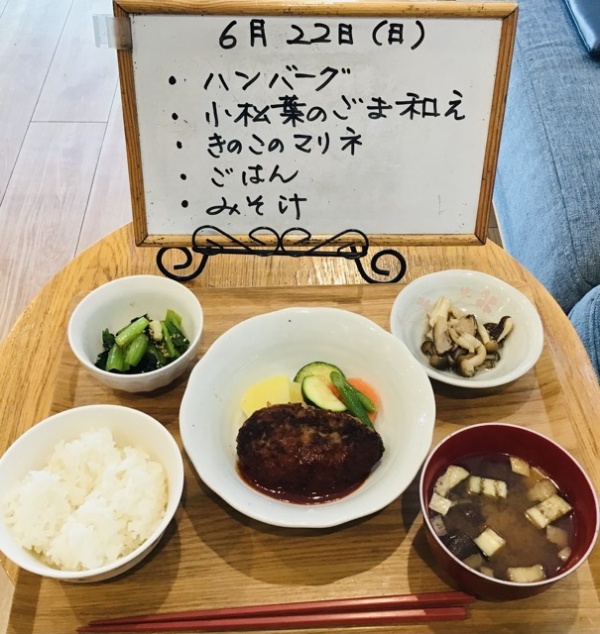 6月22日(日)
・ハンバーグ
・小松葉のごま和え
・きのこのマリネ
・ごはん
・みそ汁